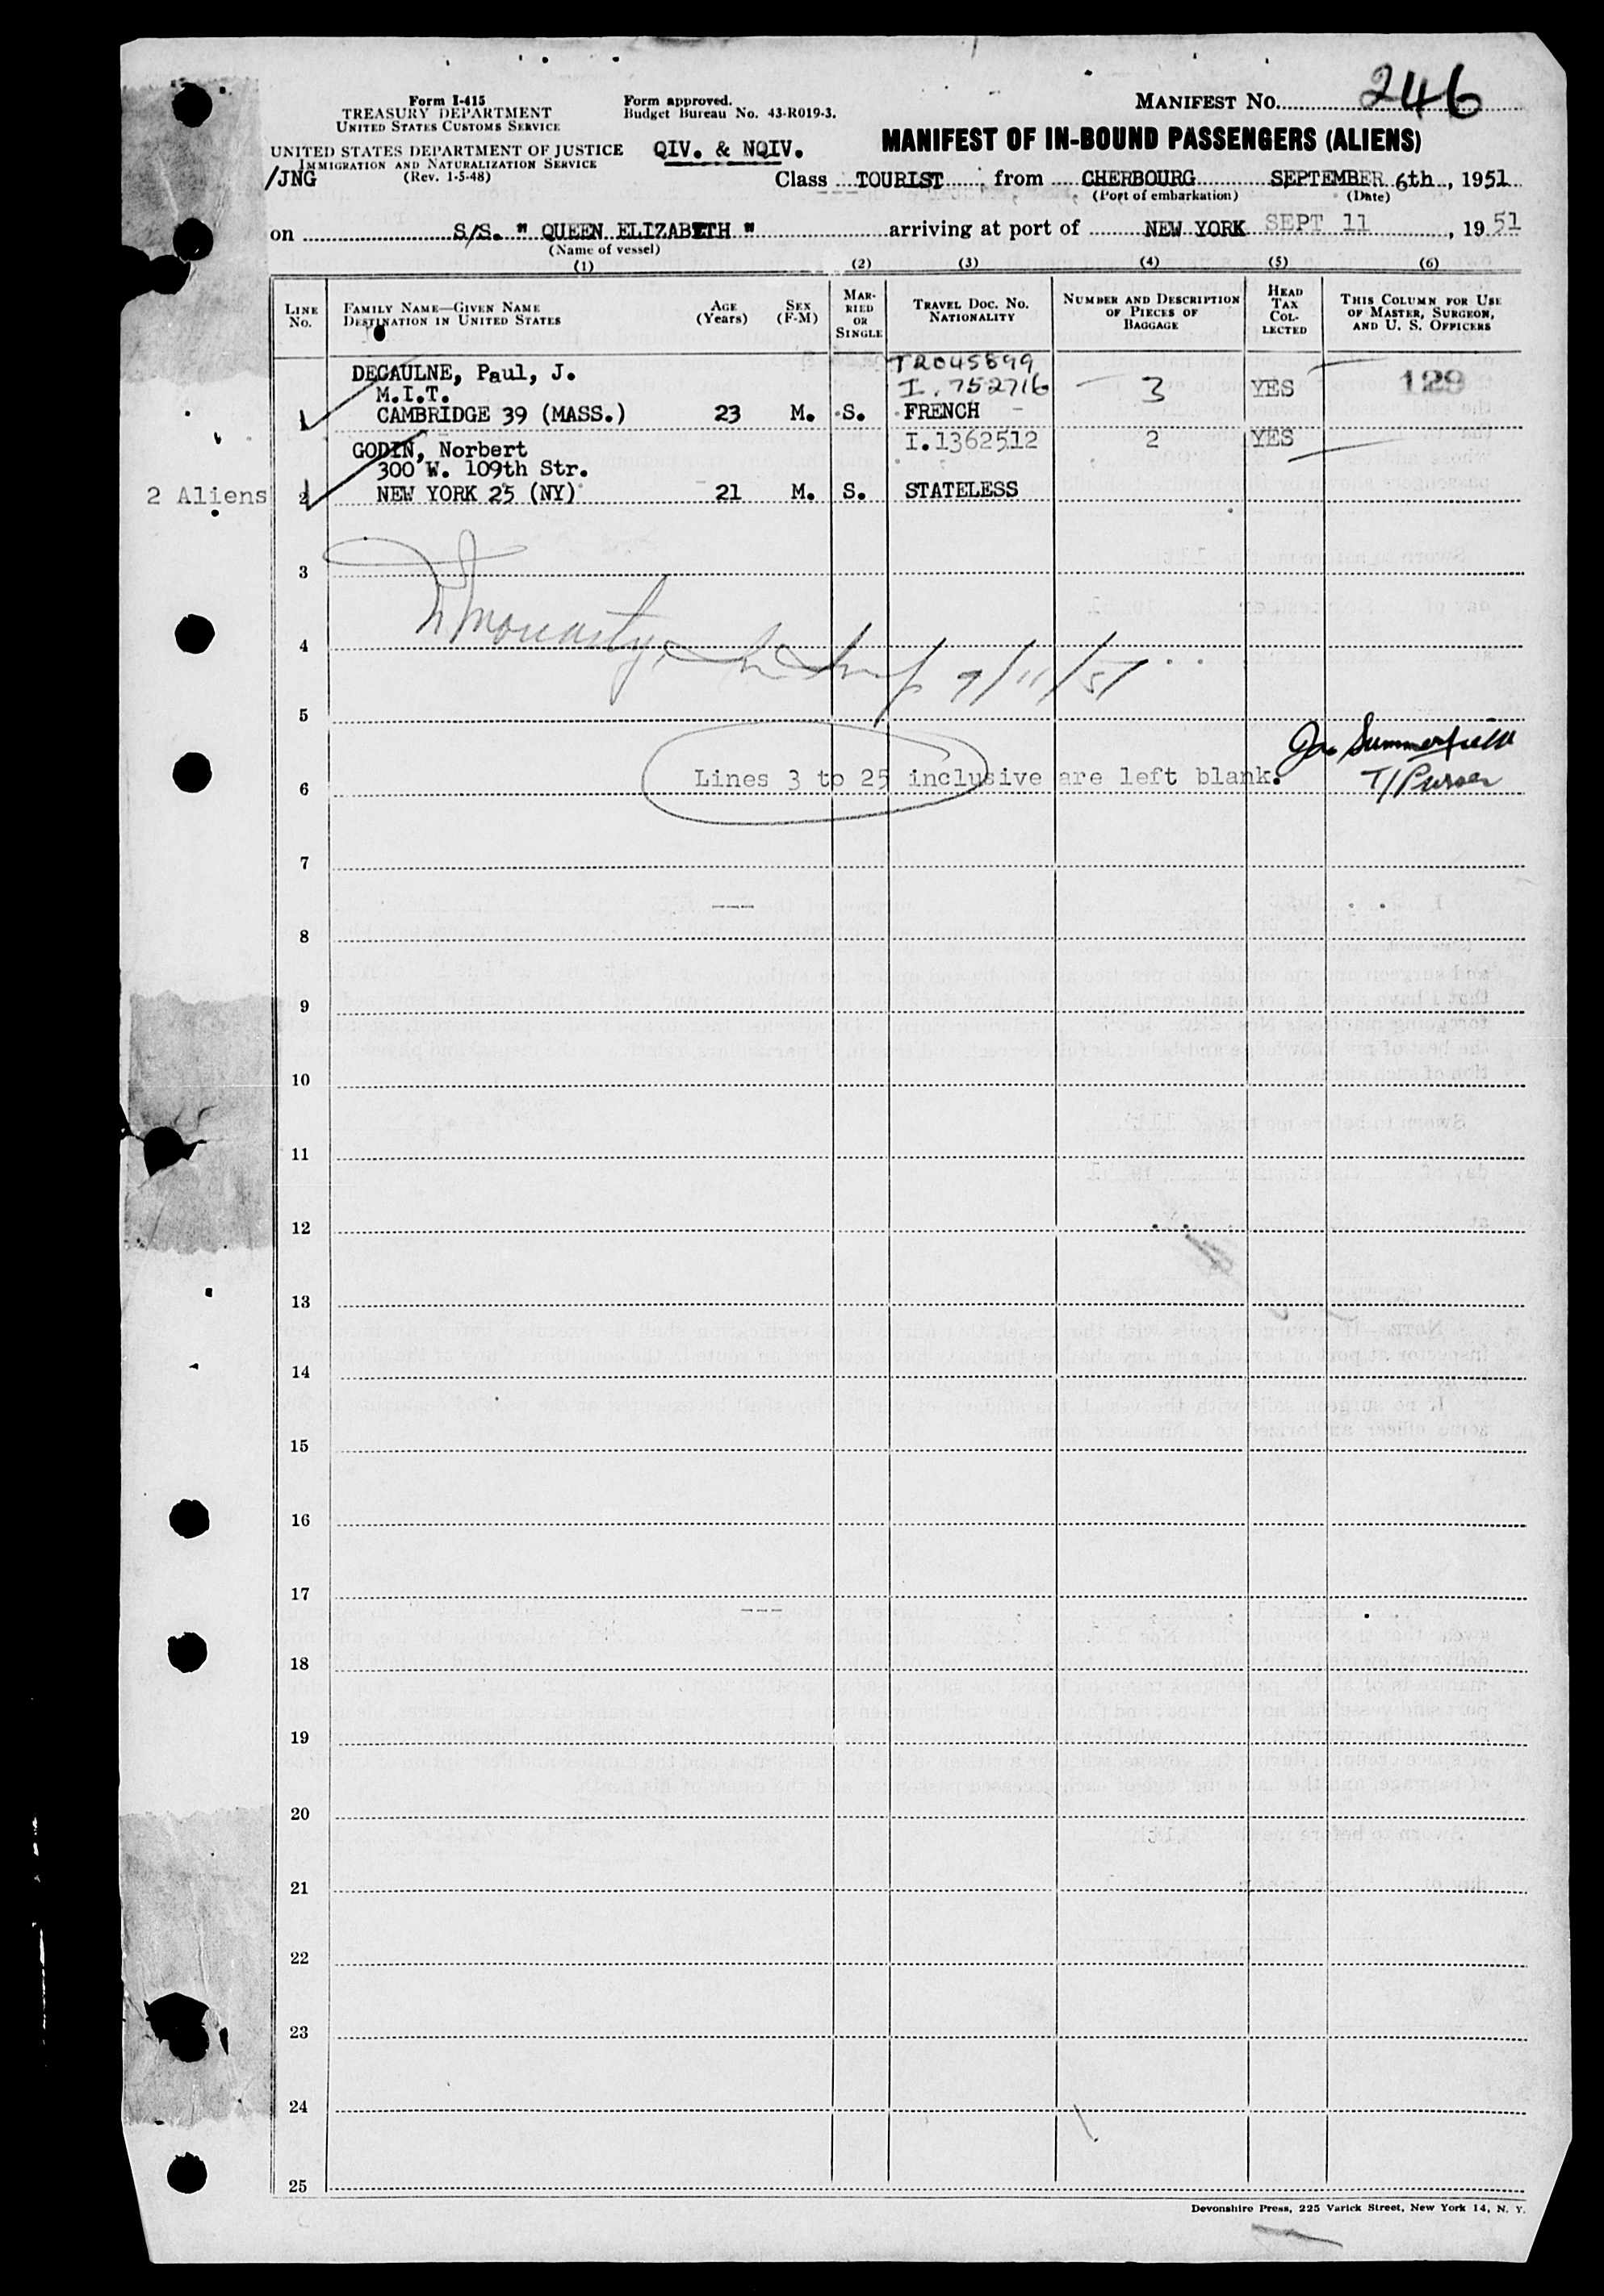 MANIFEST NO. 246
Form I-415
TREASURY DEPARTMENT
UNITED STATES CUSTOMS SERVICE
Form approved.
Budget Bureau No. 43-R019-3.
MANIFEST OF IN-BOUND PASSENGERS (ALIENS)
UNITED STATES DEPARTMENT OF JUSTICE
IMMIGRATION AND NATURALIZATION SERVICE
(Rev. 1-5-48)
/JNG
QIV. & NQIV.
Class TOURIST, from CHERBOURG SEPTEMBER 6th, 1951
(Port of embarkation) (Date)
on S/S. " QUEEN ELIZABETH " arriving at port of NEW YORK SEPT 11, 1951
(Name of vessel)
(1) (2) (3) (4) (5) (6)
LINE No.
FAMILY NAME—GIVEN NAME
DESTINATION IN UNITED STATES
AGE (Years)
SEX (F-M)
MARRIED OR SINGLE
TRAVEL DOC. NO. NATIONALITY
NUMBER AND DESCRIPTION OF PIECES OF BAGGAGE
HEAD TAX COLLECTED
THIS COLUMN FOR USE OF MASTER, SURGEON, AND U. S. OFFICERS
TR045899
DEGAULNE, Paul, J. I. 752716 3 YES 129
M.I.T.
1 CAMBRIDGE 39 (MASS.) 23 M. S. FRENCH
GODIN, Norbert I.1362512 2 YES
300 W. 109th Str.
2 Aliens 2 NEW YORK 25 (NY) 21 M. S. STATELESS
3
4
9/11/51
5
Jas Summerfield
Lines 3 to 25 inclusive are left blank.
T/Purser
6
7
8
9
10
11
12
13
14
15
16
17
18
19
20
21
22
23
24
25
Devonshire Press, 225 Varick Street, New York 14, N. Y.